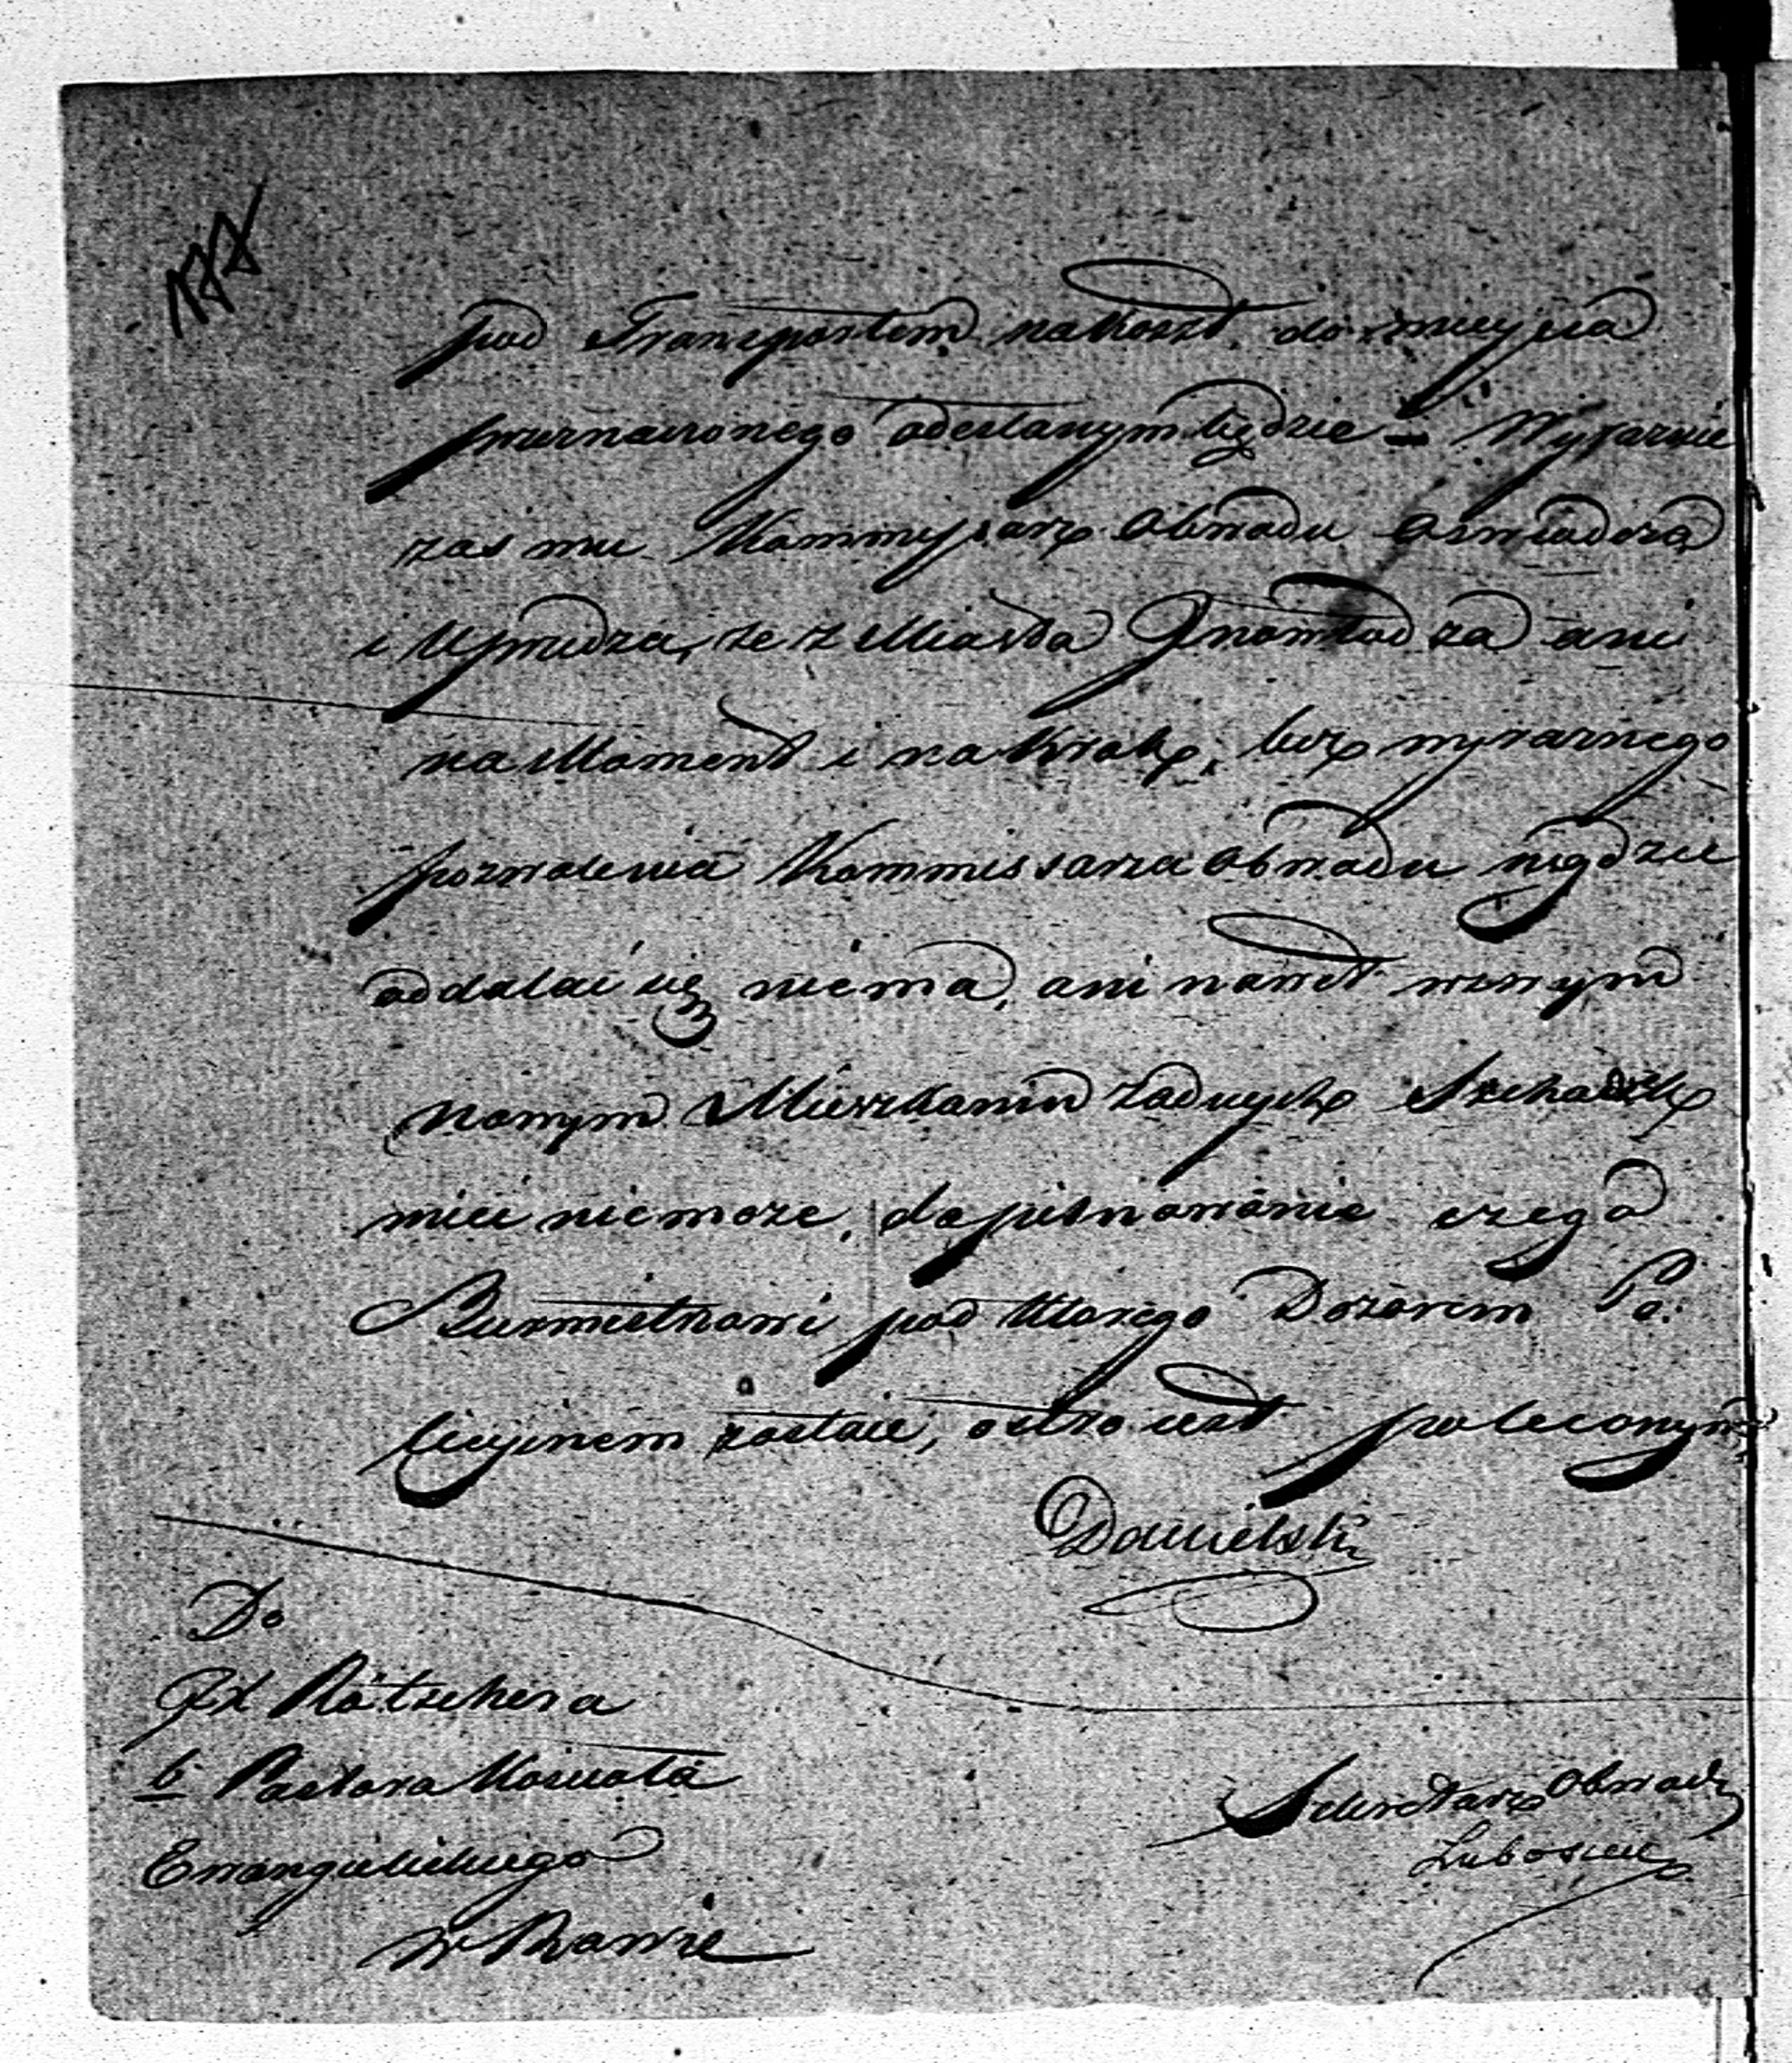 pod Transportem na koszt do mieysca
przeznaczonego odesłanym będzie – Wyraznie
zas mu Kommyssarz Obwodu oswiadcza
i Uprzedza, ze z Miasta ani
na Moment i na krok, bez wyraznego
pozwolenia Kommissarza Obwodu nigdzie
oddalać się niema, ani nawet w swym
nowym Mieszkaniu zadnych Schadzek
mieć niemoze, dopilnowanie czego
Burmistrzowi pod którego Dozorem Po:
licyinem zostaie, ostro iest poleconym
Danielski
Do
JX Rötschera
b. Pastora Koscioła
Ewangielickiego
w Rawie
Sekretarz Obwodu